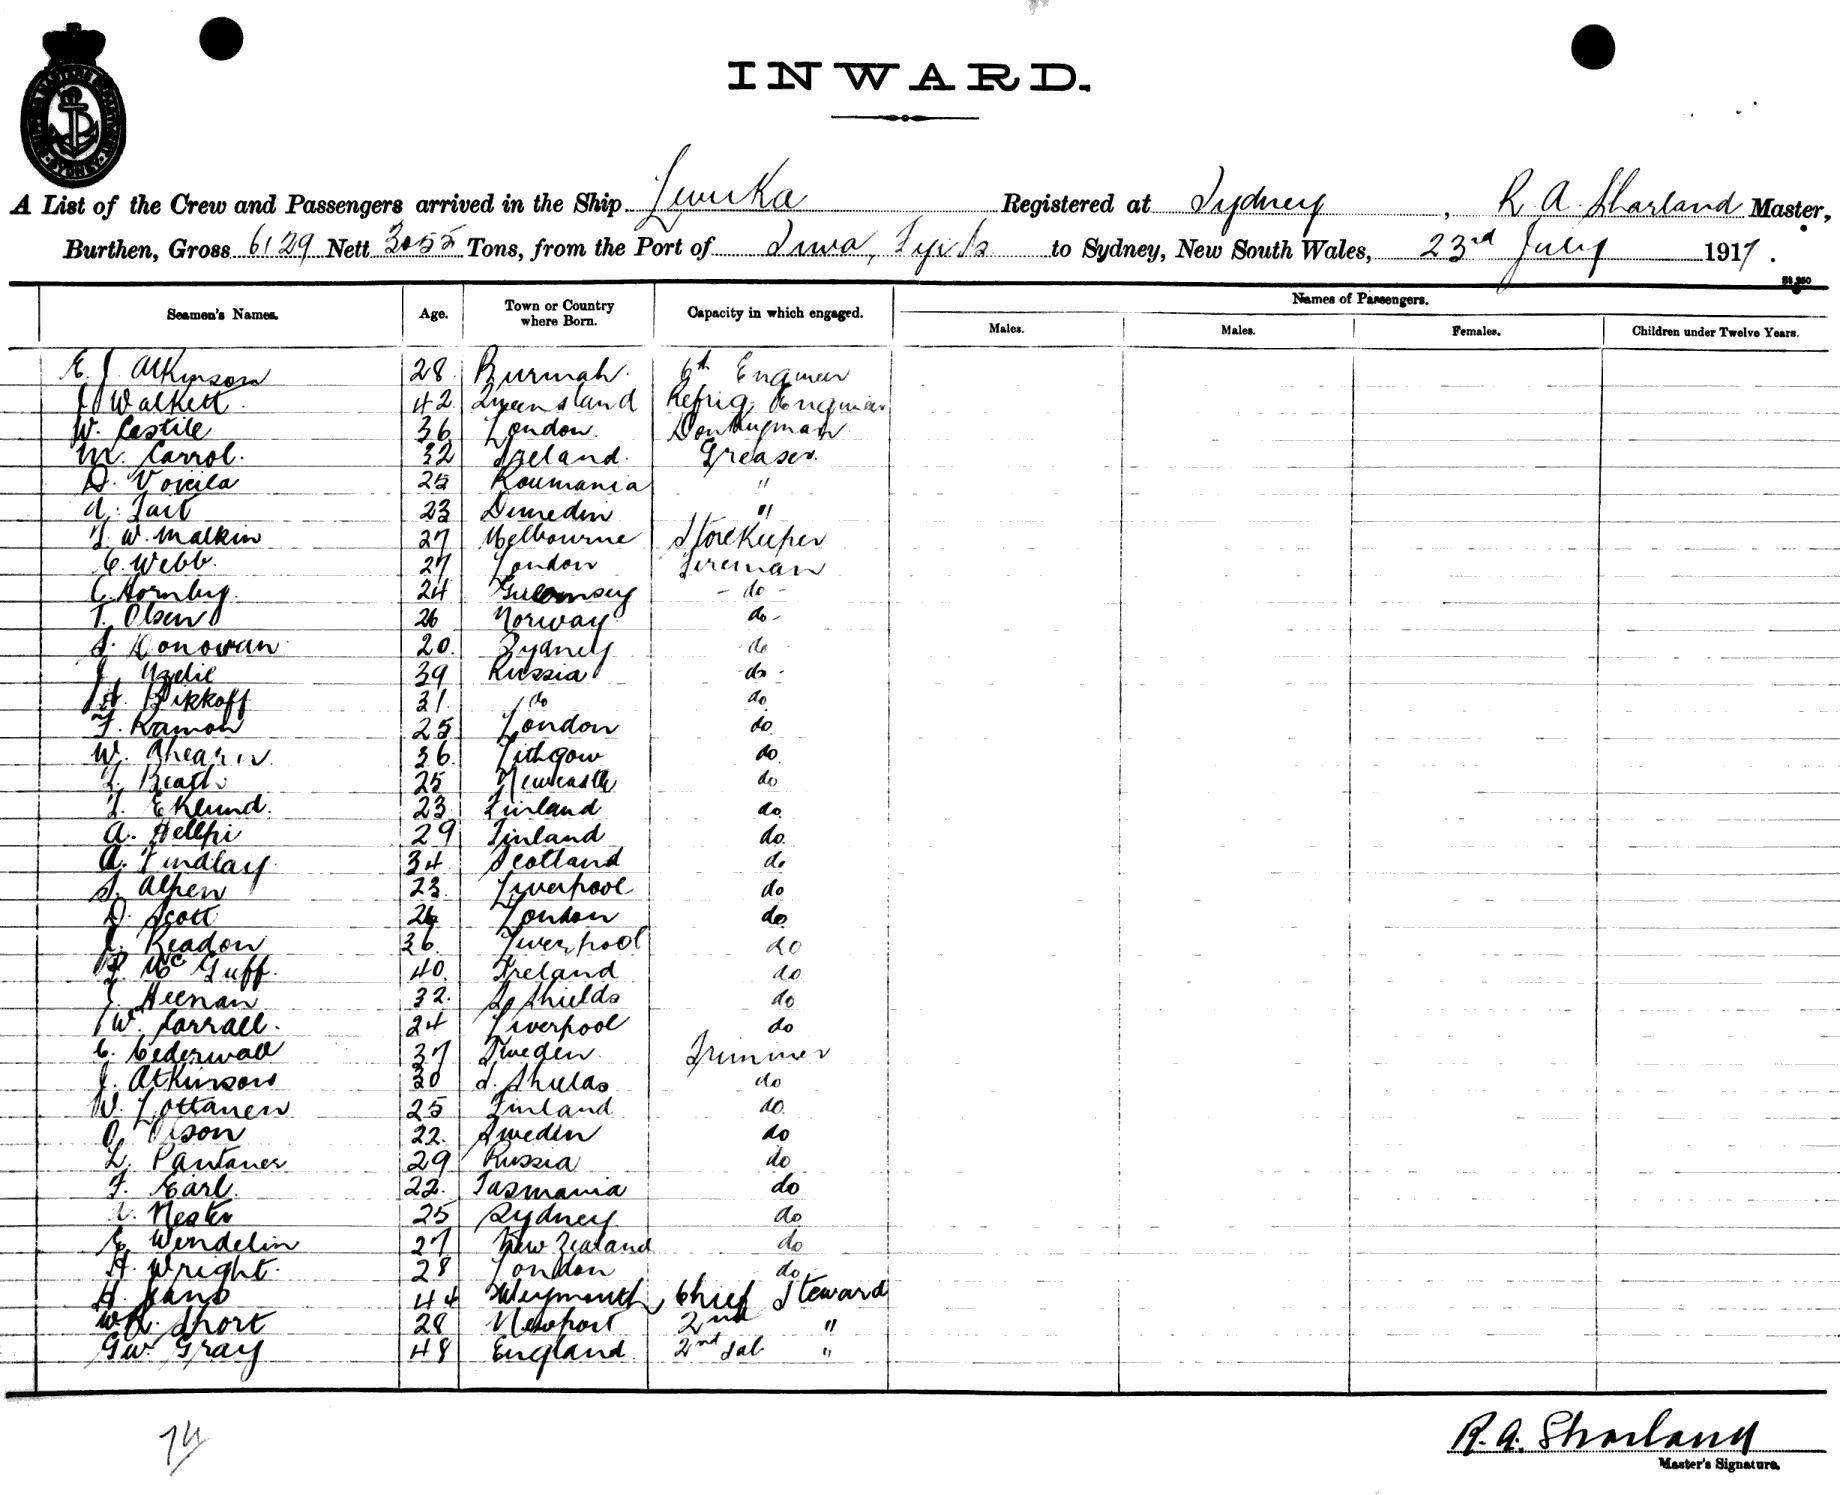 INWARD.
A List of the Crew and Passengers arrived in the Ship Levuka Registered at Sydney, R A. Sharland Master,
Burthen, Gross 6129 Nett 3055 Tons, from the Port of Suva, Fiji Is to Sydney, New South Wales, 23rd July 1917.
Names of Passengers.
Seamen's Names. Age. Town or Country where Born. Capacity in which engaged. Males. Males. Females. Children under Twelve Years.
E. J. Atkinson 28 Burmah. 6th Engineer
J Walkett 42 Queensland Refrig. Engineer
W. Castile 36 London. Donkeyman
M. Carrol. 32 Ireland. Greaser.
D. Voicila 25 Roumania "
A. Tait 23 Dunedin "
T. W. Malkin 27 Melbourne Storekeeper
C. Webb. 27 London Fireman
C. Hornby. 24 Guernsey - do -
T. Olsen 26 Norway do -
S. Donovan 20. Sydney do
J. 39 Russia do -
A. Bikkoff 31. do do
F. Ramon 25 London do
W. Ahearin 36. Lithgow do
25 Newcastle do
T. Eklund. 23 Finland do
A. Hellpi 29 Finland do
A. Findlay. 34 Scotland do
S. Alpen 23. Liverpool do
D. Scott 26 London do
J. Readon 36. Liverpool do
P. McGuff. 40. Ireland do
J. Heenan 32. S. Shields do
W. Carrall. 24 Liverpool do
C. Cederwall 37 Sweden. Trimmer
J. Atkinson 20 S. Shields do
W. Lottanen 25 Finland do.
O. Olson 22. Sweden do
L. Pantaner 29 Russia do
F. Earl. 22. Tasmania do
Nester 25 Sydney do
E. Wendelin 27 New Zealand do
H. Wright. 28 London do
H. Jano 44 Weymouth Chief Steward
W R. Short 28 Newport 2nd "
G W. Gray 48 England. 2nd Sal. "
74
R. A. Sharland
Master's Signature.